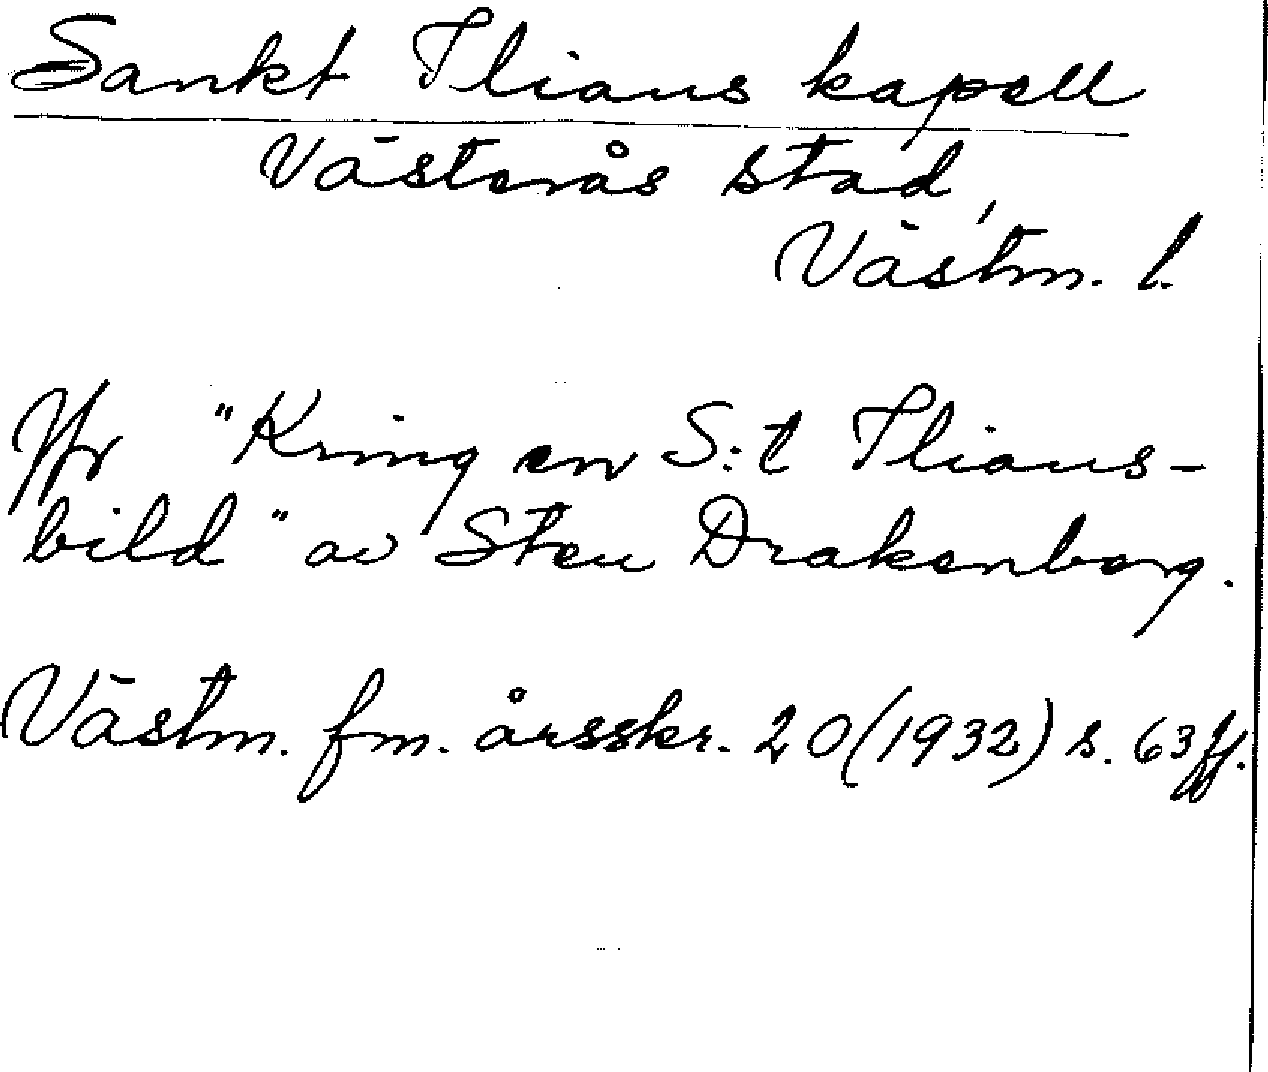 Sankt Ilians kapell
Västerås stad,
Västm. l.
Jfr "Kring en S:t Ilians-
bild" av Sten Drakenberg.
Västm. fm. årsskr. 20 (1932) s. 63 ff.